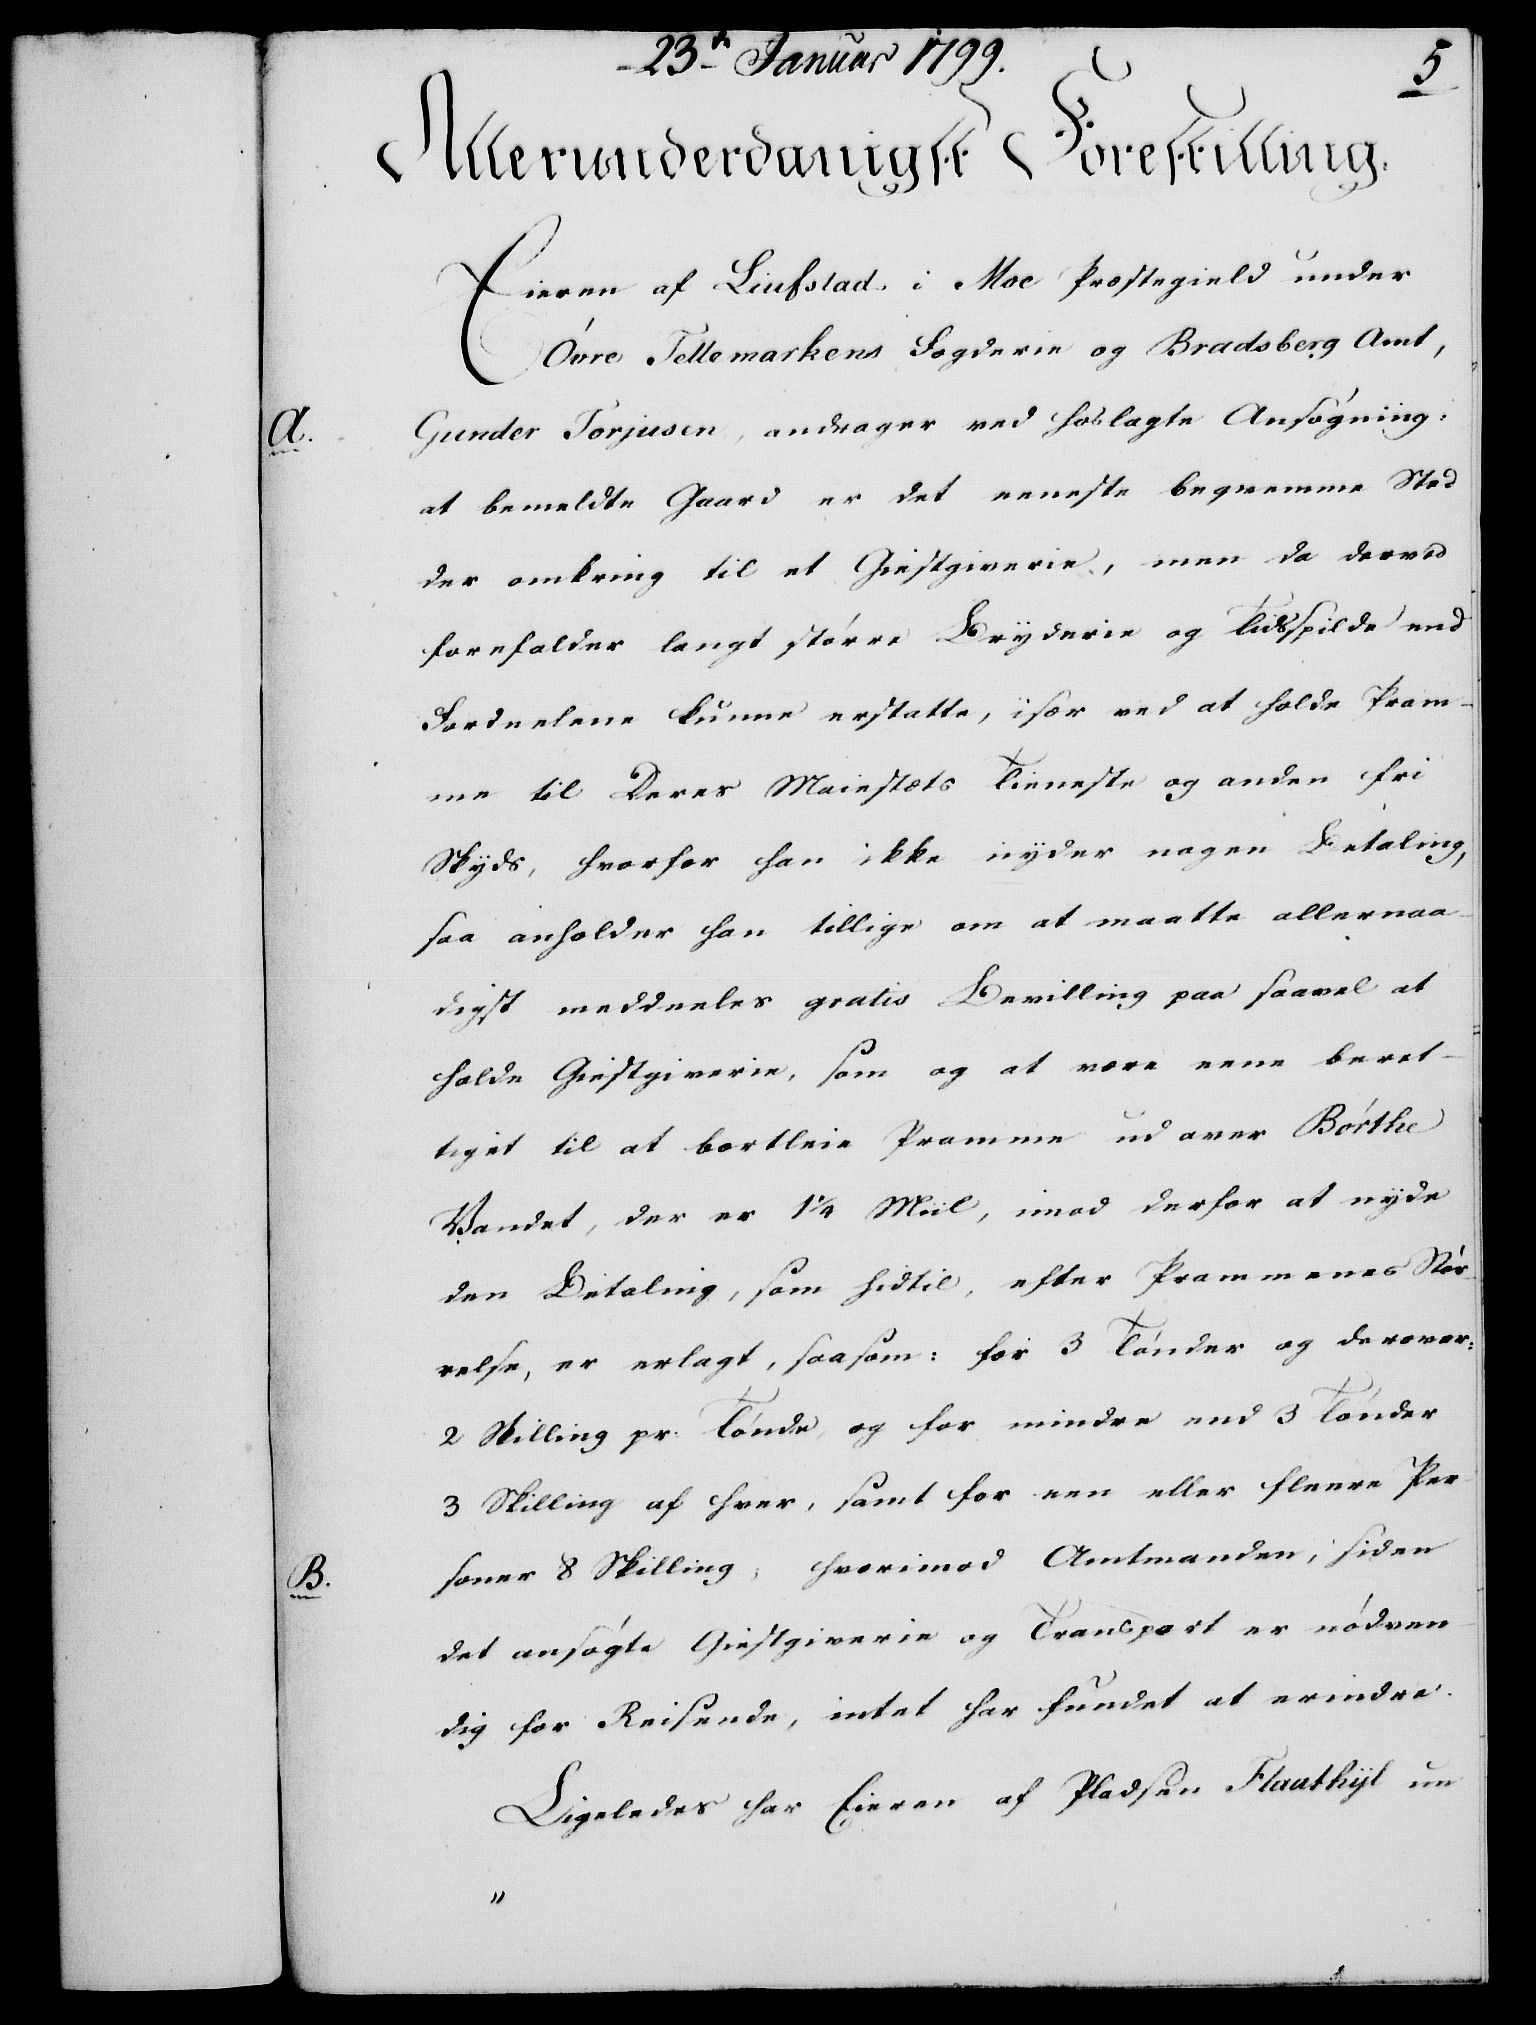 23de Januar 1799.
5
Allerunderdanigst Forestilling.
Eieren af Liufstad i Moe Præstegield under
Övre Tellemarkens Fogderie og Bradsberg Amt,
A.
Gunder Torjusen, andrager ved hoslagte Ansøgning:
at bemeldte Gaard er det eeneste beqvemme Sted
der omkring til et Giestgiverie, men da derved
forefalder langt större Bryderie og Tidsspilde end
Fordeelene kunne erstatte, især ved at holde Pram-
me til Deres Maiestæts Tieneste og anden fri
Skyds, hvorfor han ikke nyder nogen Betaling,
saa anholder han tillige om at maatte allernaa-
digst meddeeles gratis Bevilling paa saavel at
holde Giestgiverie, som og at være eene beret-
tiget til at bortleie Pramme ud over Börthe
Vandet, der er 1¼ Miil, imod derfor at nyde
den Betaling, som hidtil, efter Prammenes Stör-
relse, er erlagt, saasom: for 3 Tönder og derover:
2 Skilling pr. Tönde, og for mindre end 3 Tönder
3 Skilling af hver, samt for een eller fleere Per
B.
soner 8 Skilling; hvorimod Amtmanden, siden
det ansögte Giestgiverie og Transport er nödven
dig for Reisende, intet har fundet at erindre.
Ligeledes har Eieren af Pladsen Flaathyl un
"